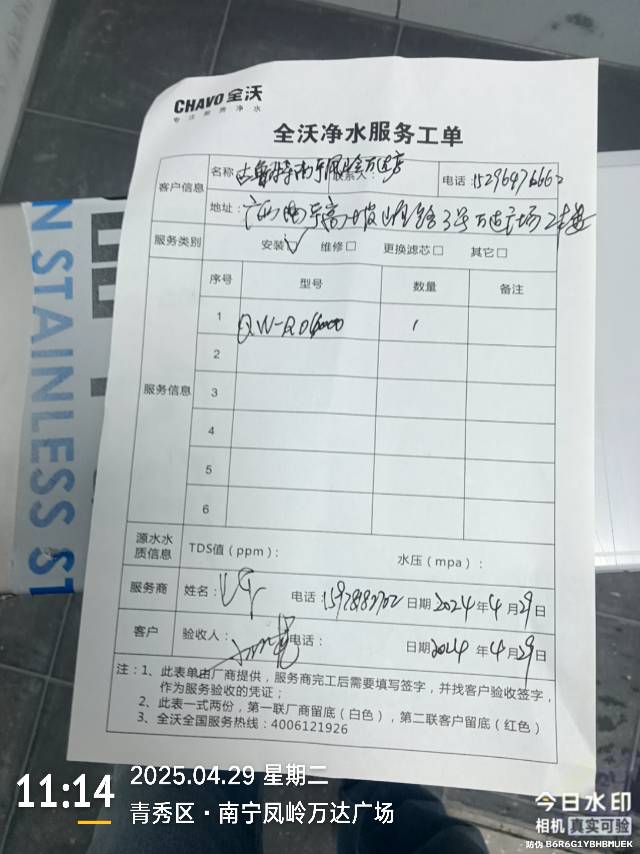 CHAVO 全沃
专注商务净水
全沃净水服务工单
客户信息
名称 南宁凤岭万达店 联系人:
电话:
地址: 广西南宁 3号万达广场2楼
服务类别 安装✓ 维修□ 更换滤芯□ 其它□
服务信息
序号 型号 数量 备注
1 1
2
3
4
5
6
源水水质信息 TDS值(ppm): 水压(mpa):
服务商 姓名: 电话: 日期 2024年4月29日
客户 验收人: 电话: 日期 2024年4月29日
注:1、此表单由厂商提供,服务商完工后需要填写签字,并找客户验收签字,
作为服务验收的凭证;
2、此表一式两份,第一联厂商留底(白色),第二联客户留底(红色)
3、全沃全国服务热线:4006121926
N STAINLESS ST
11:14
2025.04.29 星期二
青秀区·南宁凤岭万达广场
今日水印
相机 真实可验
防伪 B6R6G1YBHBMUEK